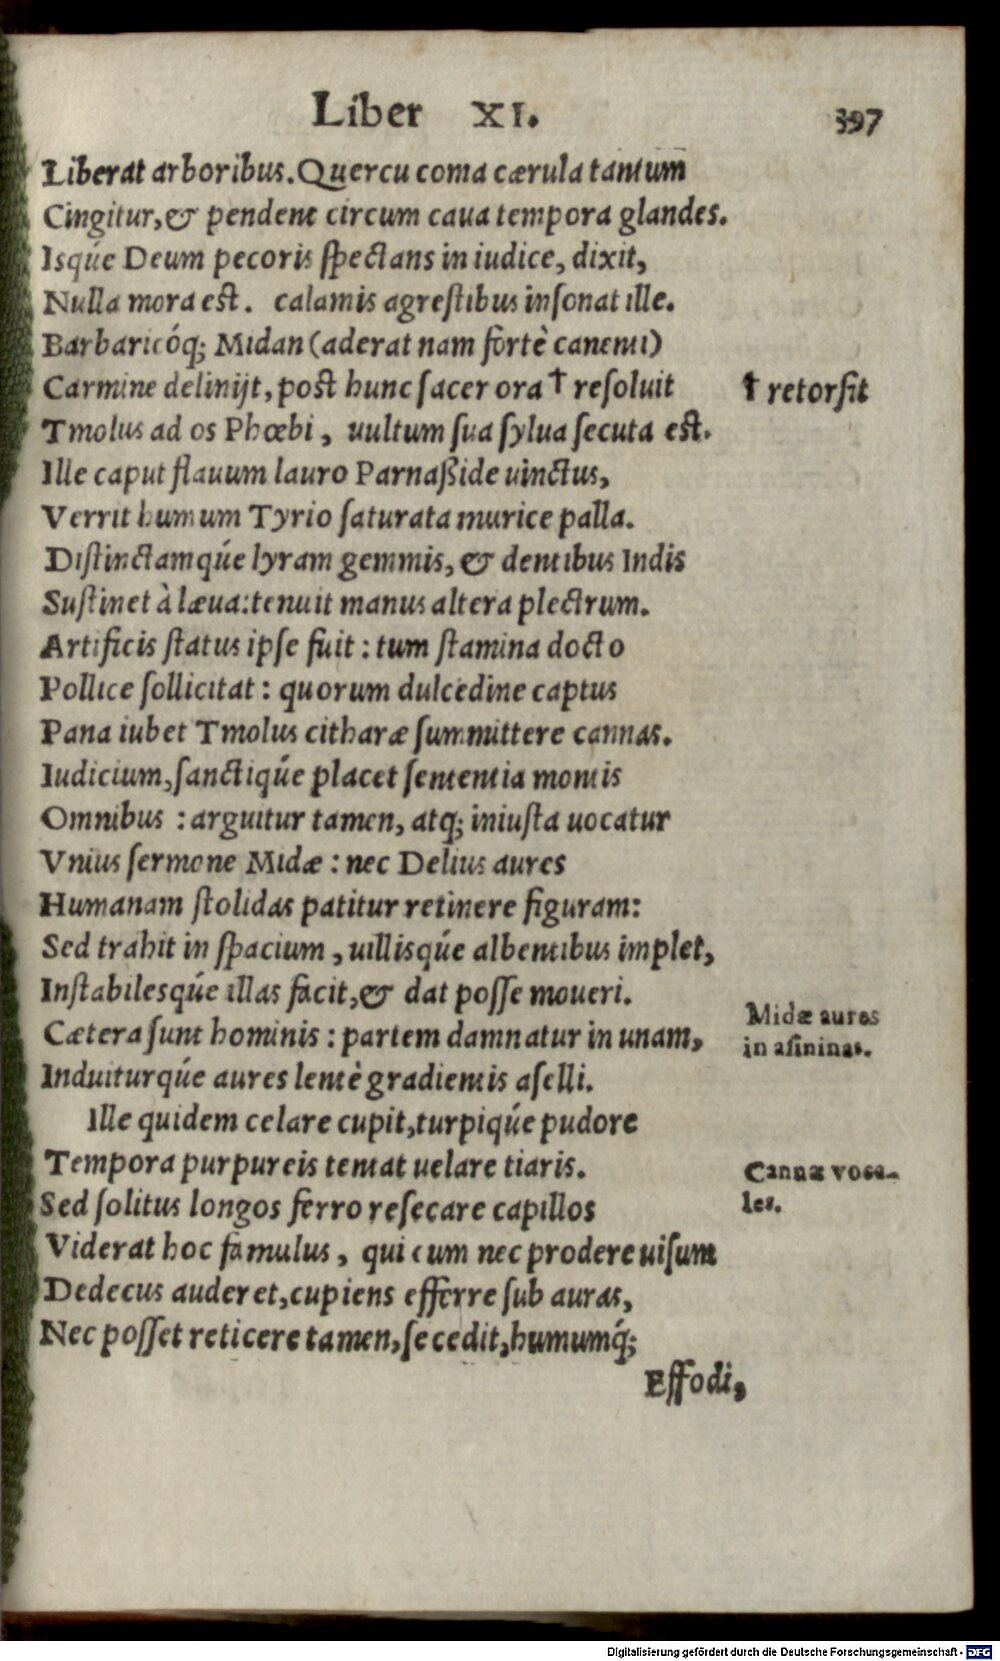 Liber XI. 397
Liberat arboribus. Quercu coma cærula tantum
Cingitur, & pendent circum caua tempora glandes.
Isq́ue Deum pecoris ſpectans in iudice, dixit,
Nulla mora est. calamis agreſtibus inſonat ille.
Barbaricóq; Midan (aderat nam fortè canenti)
Carmine delinijt, post hunc ſacer ora † reſoluit
† retorſit
Tmolus ad os Phœbi, uultum ſua ſylua ſecuta est.
Ille caput flauum lauro Parnaßide uinctus,
Verrit humum Tyrio ſaturata murice palla.
Diſtinctamq́ue lyram gemmis, & dentibus Indis
Suſtinet à læua: tenuit manus altera plectrum.
Artificis ſtatus ipſe fuit: tum ſtamina docto
Pollice ſollicitat: quorum dulcedine captus
Pana iubet Tmolus citharæ ſummittere cannas.
Iudicium, ſanctiq́ue placet ſententia montis
Omnibus: arguitur tamen, atq; iniuſta uocatur
Vnius ſermone Midæ: nec Delius aures
Humanam ſtolidas patitur retinere figuram:
Sed trahit in ſpacium, uillisq́ue albentibus implet,
Inſtabilesq́ue illas facit, & dat poſſe moueri.
Midæ aures
Cætera ſunt hominis: partem damnatur in unam,
in aſininas.
Induiturq́ue aures lentè gradientis aſelli.
Ille quidem celare cupit, turpiq́ue pudore
Tempora purpureis tentat uelare tiaris.
Cannæ voca-
Sed ſolitus longos ferro reſecare capillos
les.
Viderat hoc famulus, qui cum nec prodere uiſum
Dedecus auderet, cupiens efferre ſub auras,
Nec poſſet reticere tamen, ſecedit, humumq́;
Effodi,
Digitalisierung gefördert durch die Deutsche Forschungsgemeinschaft - DFG